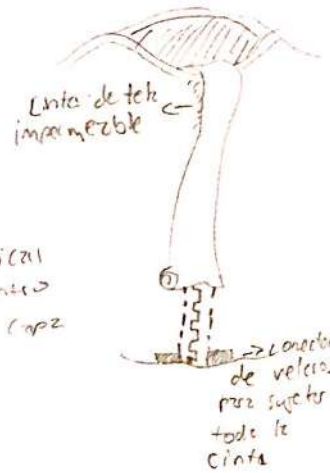 cinta de tela
impermeable
capa
conector
de velcros
para sujetar
toda la
cinta